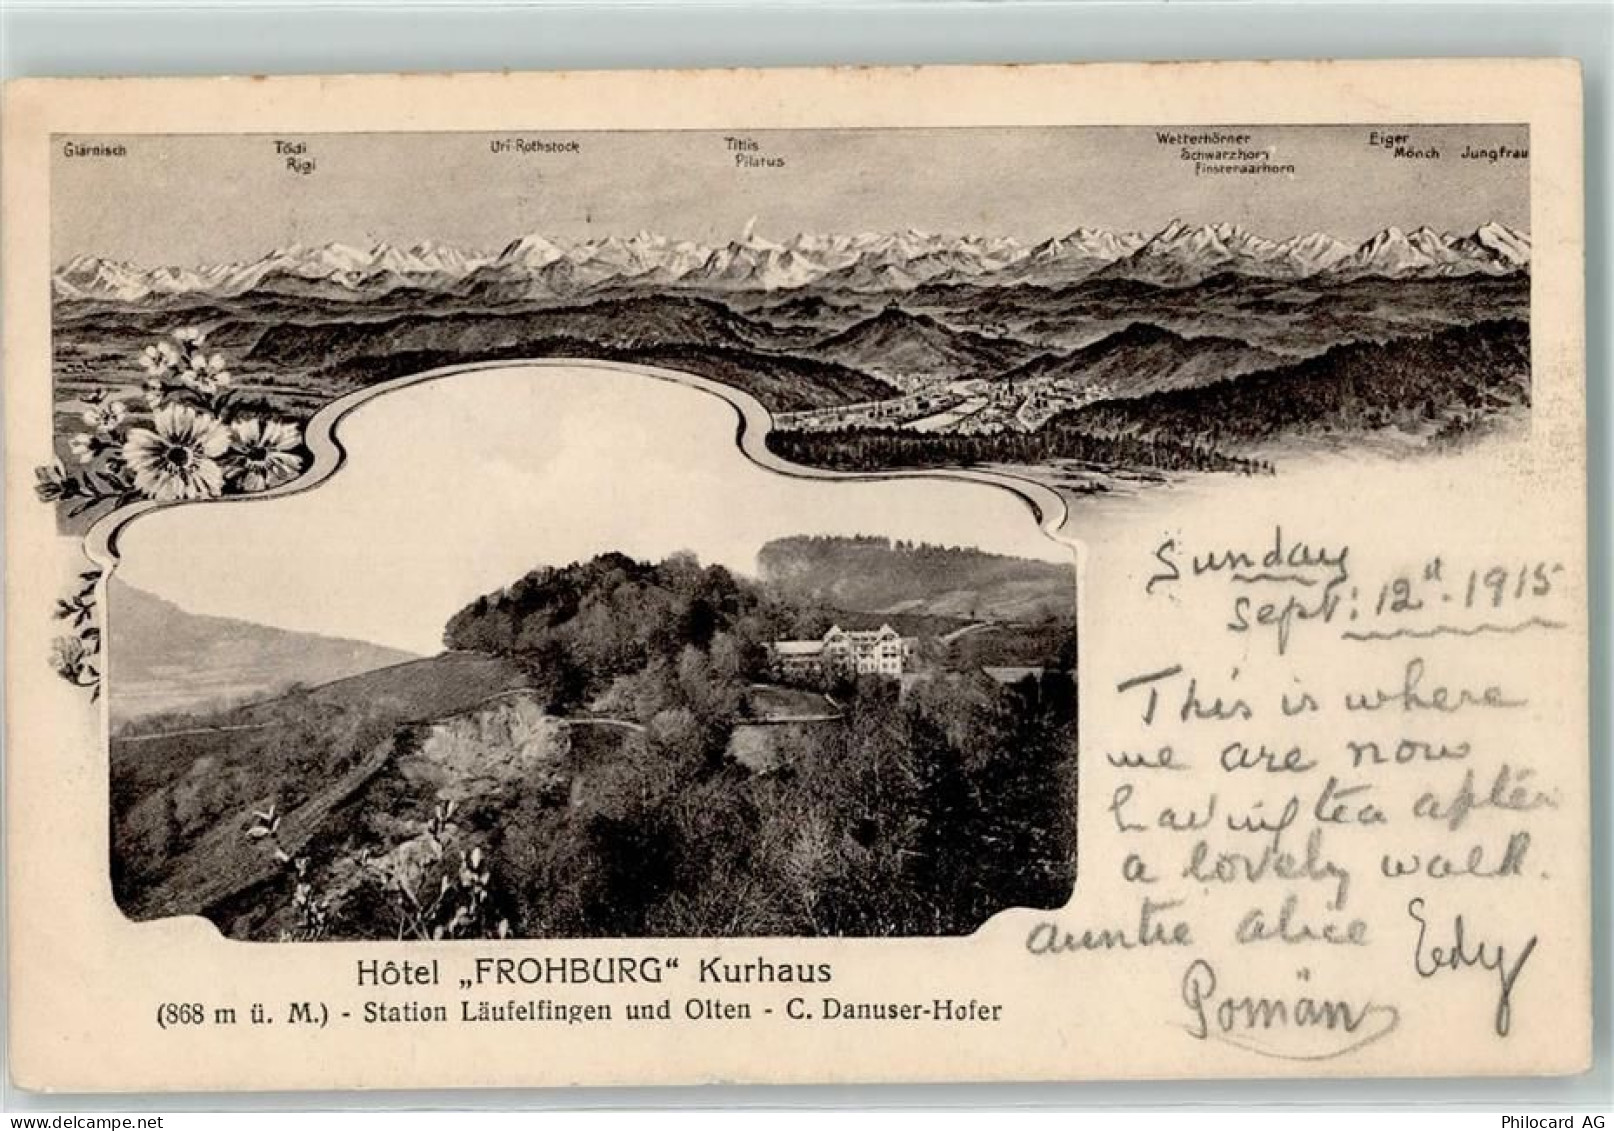 Glärnisch
Tödi
Rigi
Uri-Rothstock
Titlis
Pilatus
Wetterhörner
Schwarzhorn
Finsteraarhorn
Eiger
Mönch
Jungfrau
Sunday
Sept: 12th. 1915
This is where
we are now
having tea after
a lovely walk.
Auntie Alice Edy
Pomän
Hôtel „FROHBURG“ Kurhaus
(868 m ü. M.) - Station Läufelfingen und Olten - C. Danuser-Hofer
www.delcampe.net
Philocard AG